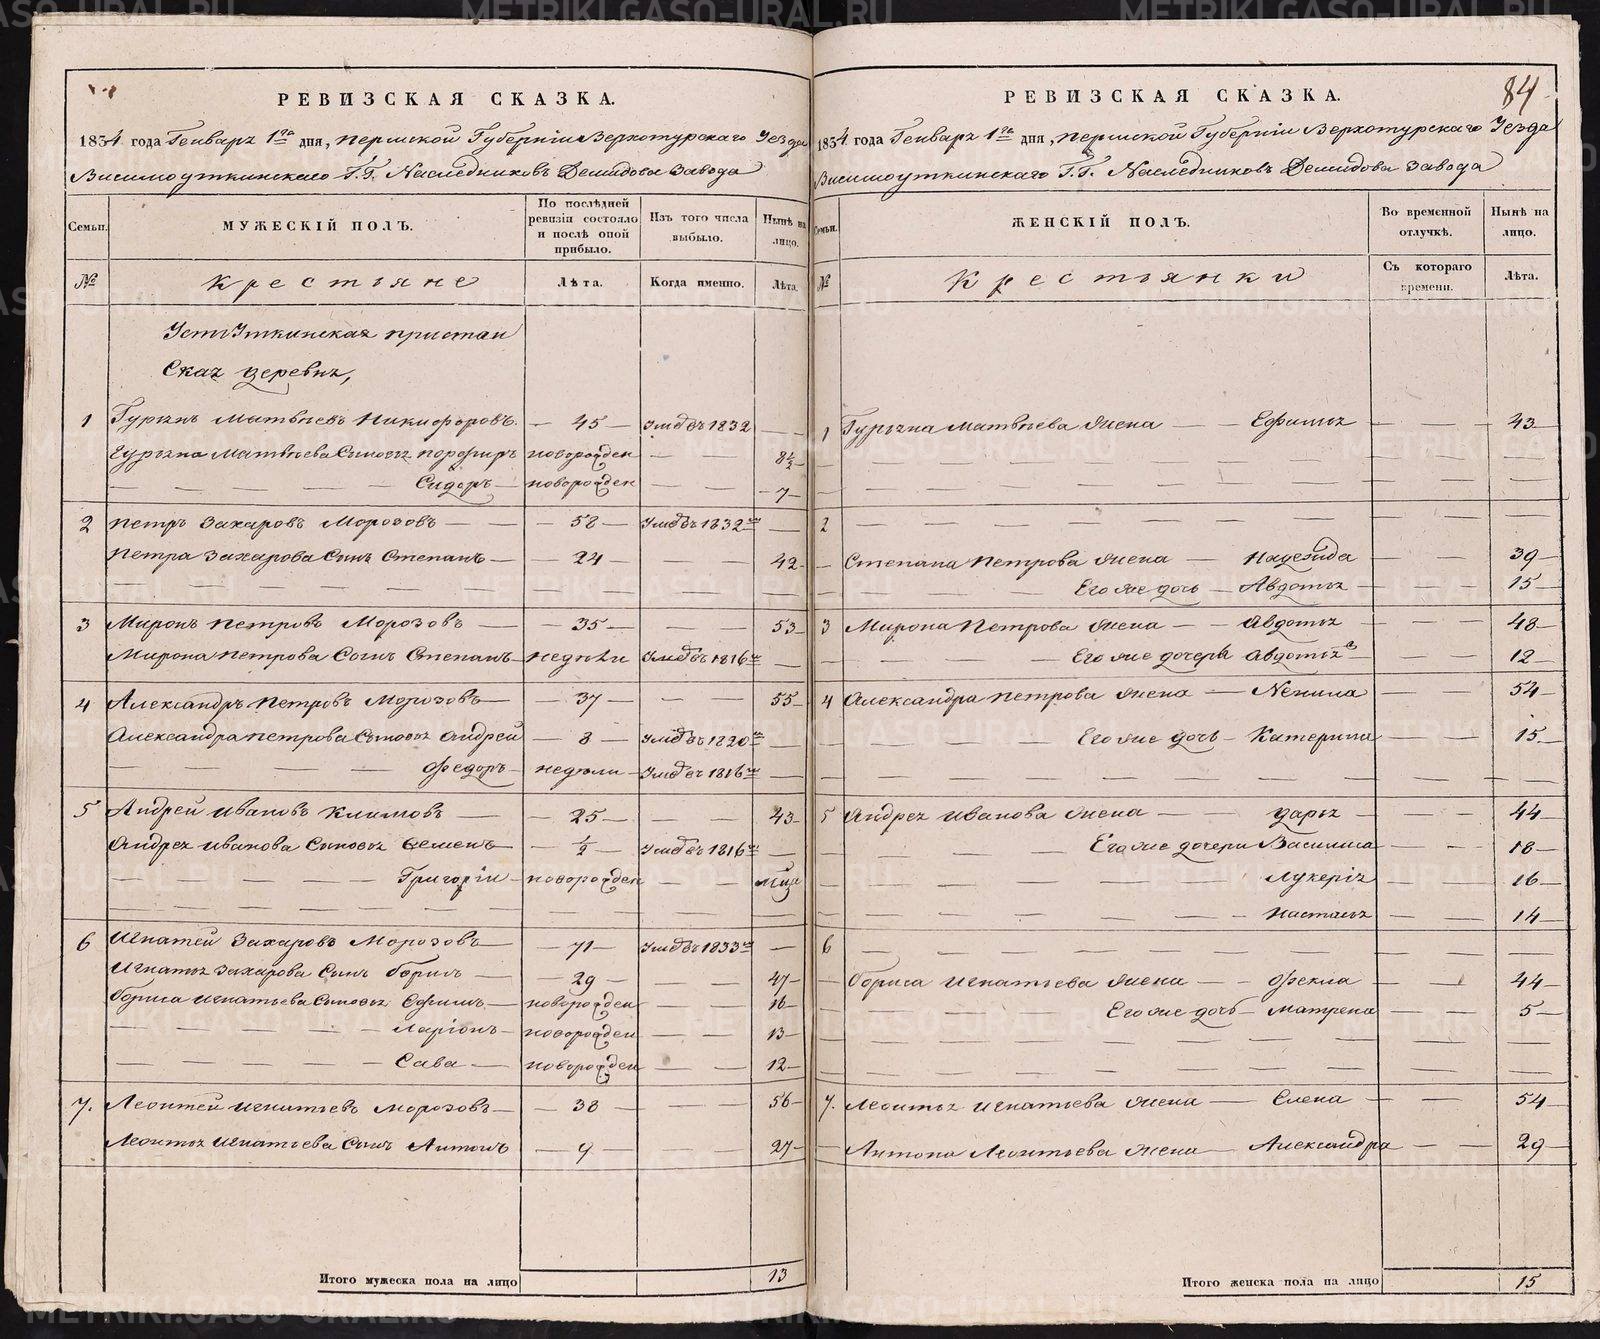 РЕВИЗСКАЯ СКАЗКА.
1834 года Генваря 1го дня, Пермской Губерніи Верхотурскаго Уезда
Висимоуткинскаго Г.Г. Наследниковъ Демидова Завода
Семьи.
МУЖЕСКІЙ ПОЛЪ.
По послѣдней ревизіи состояло и послѣ оной прибыло.
Изъ того числа выбыло.
Нынѣ на лицо.
№
Крестьяне
Лѣта.
Когда именно.
Лѣта.
УстьУткинская пристан
Ская деревня,
1 Гурьянъ Матвѣевъ Никифоровъ 45 Умеръ въ 1832
Гурьяна Матвѣева Сыновья порфиръ новорожден 8 1/2
Сидоръ новорожден 7
2 Петръ Захаровъ Морозовъ 58 Умеръ въ 1832
Петра Захарова Сынъ Степанъ 24 42
3 Миронъ Петровъ Морозовъ 35 53
Мирона Петрова Сынъ Степанъ недѣли Умеръ въ 1816
4 Александръ Петровъ Морозовъ 37 55
Александра Петрова Сыновья Андрей 8 Умеръ въ 1820
Федоръ недѣли Умеръ въ 1816
5 Андрей Ивановъ Климовъ 25 43
Андрея Иванова Сыновья Семенъ 1/2 Умеръ въ 1816
Григорій новорожден
6 Игнатей Захаровъ Морозовъ 71 Умеръ въ 1833
Игнатья Захарова Сынъ Борисъ 29 47
Бориса Игнатьева Сыновья Ефимъ новорожден 16
Ларіонъ новорожден 13
Сава новорожден 12
7. Леонтей Игнатьевъ Морозовъ 38 56
Леонтья Игнатьева Сынъ Антонъ 9 27
Итого мужеска пола на лицо 13
84
РЕВИЗСКАЯ СКАЗКА.
1834 года Генваря 1го дня, Пермской Губерніи Верхотурскаго Уезда
Висимоуткинскаго Г.Г. Наследниковъ Демидова Завода
Семьи.
ЖЕНСКІЙ ПОЛЪ.
Во временной отлучкѣ.
Нынѣ на лицо.
№
Крестьянки
Съ котораго времени.
Лѣта.
1 Гурьяна Матвѣева Жена Ефимья 43
2
Степана Петрова Жена Надежда 39
Его же дочь Авдотья 15
3 Мирона Петрова Жена Авдотья 48
Его же дочеря Авдотья 12
4 Александра Петрова Жена Ненила 54
Его же дочь Катерина 15
5 Андрея Иванова Жена Дарья 44
Его же дочери Василиса 18
Лукерія 16
Настасья 14
6
Бориса Игнатьева Жена Фекла 44
Его же дочь Матрена 5
7. Леонтья Игнатьева Жена Елена 54
Антона Леонтьева Жена Александра 29
Итого женска пола на лицо 15
METRIKI.GASO-URAL.RU